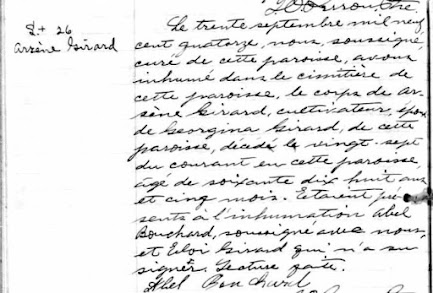 S. 26
Arsène Girard
Le trente septembre mil neuf
cent quatorze, nous, soussigné,
curé de cette paroisse, avons
inhumé dans le cimetière de
cette paroisse, le corps de Ar-
sène Girard, cultivateur, époux
de Georgina Girard, de cette
paroisse, décédé le vingt-sept
du courant en cette paroisse,
âgé de soixante dix huit ans
et cinq mois. Étaient pré-
sents à l'inhumation Abel
Bouchard, soussigné avec nous,
et Eloi Girard qui n'a su
signer. Lecture faite.
Abel Bouchard